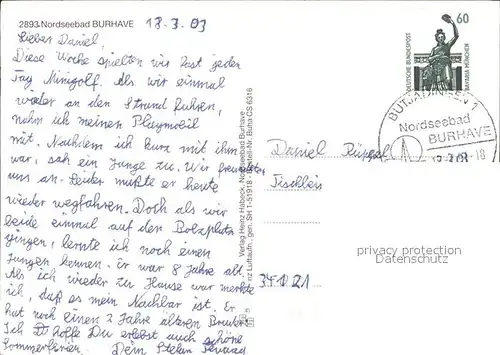 2893 Nordseebad BURHAVE
18.3.03
Lieber Daniel,
Diese Woche spielten wir fast jeden
Tag Minigolf. Als wir einmal
wieder an den Strand fuhren,
nahm ich meinen Playmobil
mit. Nachdem ich kurz mit ihm
war, sah ein Junge zu. Wir freundeten
uns an. Leider mußte er heute
wieder wegfahren. Doch als wir
beide einmal auf den Bolzplatz
gingen, lernte ich noch einen
Jungen kennen. Er war 8 Jahre alt.
Als ich wieder zu Hause war merkte
ich, daß es mein Nachbar ist. Er
hat noch einen 2 Jahre älteren Bruder.
Ich hoffe Du erlebst auch schöne
Sommerferien. Dein Stefan
Verlag Heinz Haber, Nordseebad Burhave
Luftaufn. gen. SH 1-51918 - Bestell-Nr. Buha/CS 6316
60
DEUTSCHE BUNDESPOST
BAVARIA MÜNCHEN
BUTJADINGEN 1
Nordseebad
BURHAVE
-18
Daniel
Tischlein
34121
privacy protection
Datenschutz